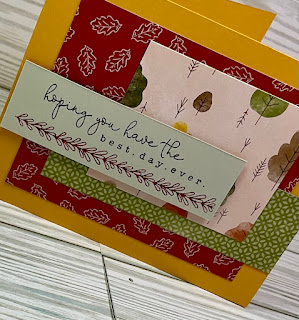 hoping you have the
best.day.ever.